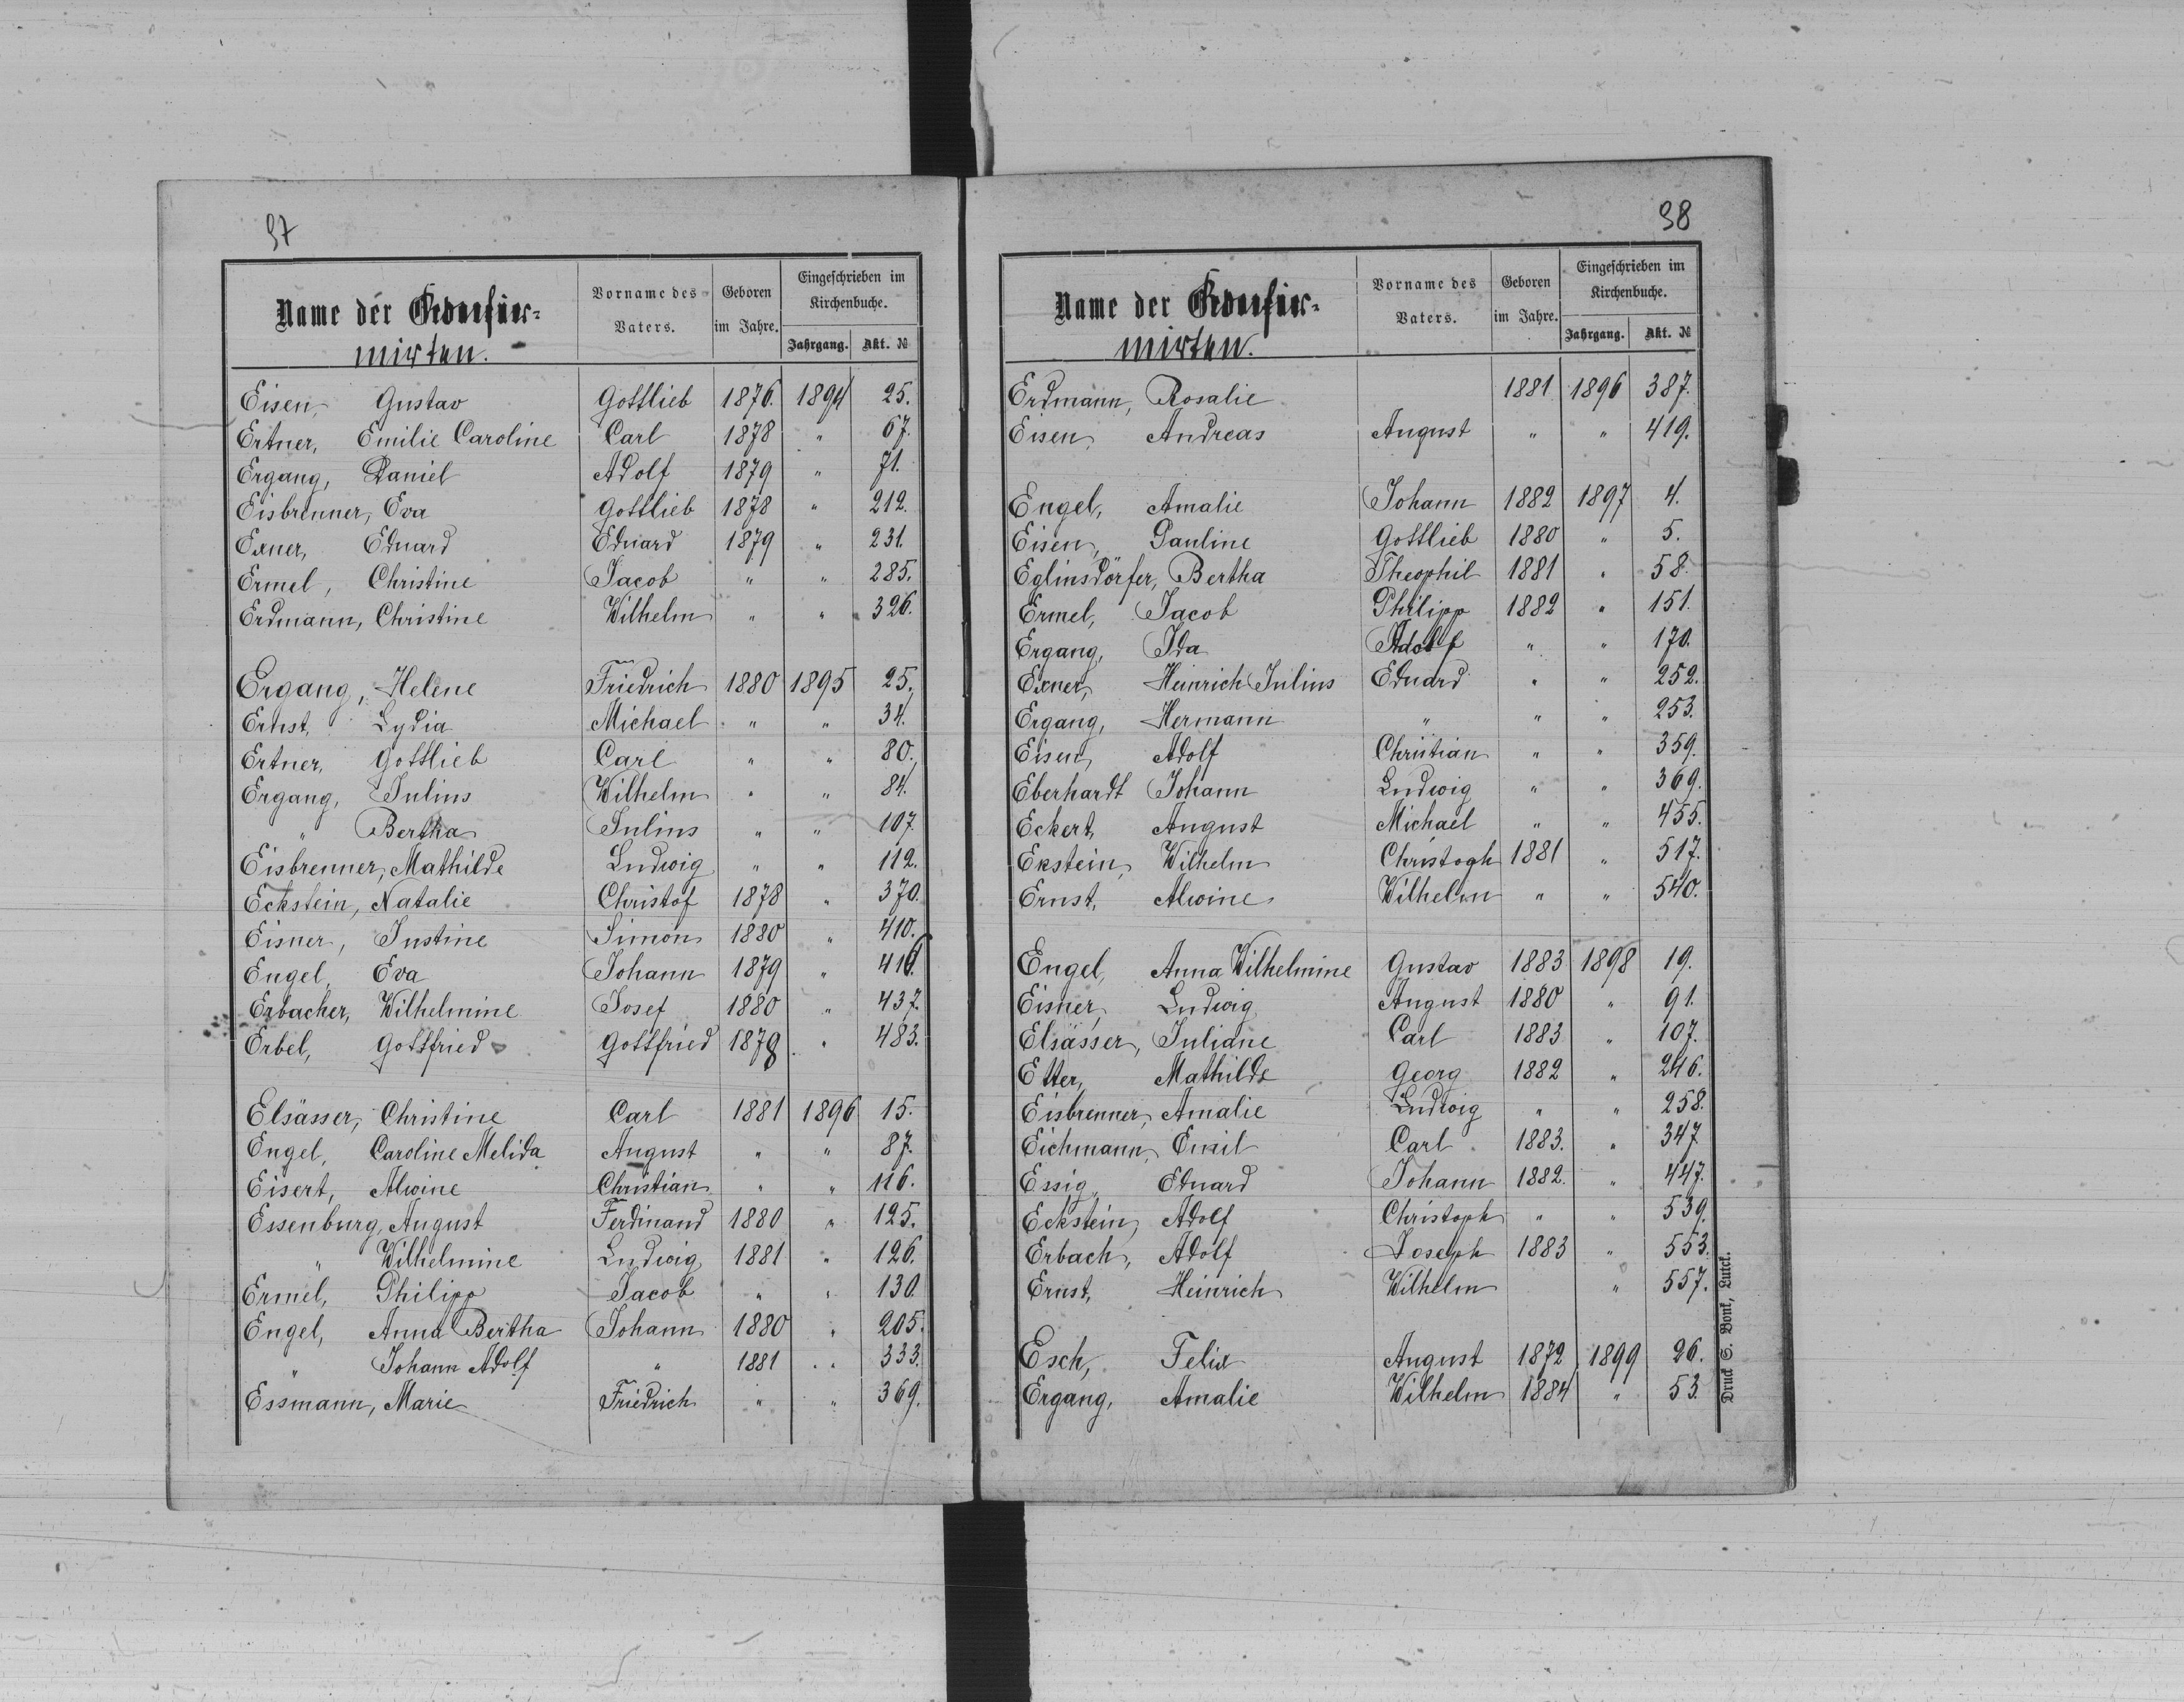 37
Name der Confir-
mirten.
Vorname des Vaters.
Geboren im Jahre.
Eingeschrieben im Kirchenbuche.
Jahrgang. Akt. №
Eisen, Gustav Gottlieb 1876. 1894 25.
Ertner, Emilie Caroline Carl 1878 " 67.
Ergang, Daniel Adolf 1879 " 71.
Eisbrenner, Eva Gottlieb 1878 " 212.
Exner, Eduard Eduard 1879 " 231.
Ermel, Christine Jacob " " 285.
Erdmann, Christine Wilhelm " " 326.
Ergang, Helene Friedrich 1880 1895 25.
Ernst, Lydia Michael " " 34.
Ertner, Gottlieb Carl " " 80.
Ergang, Julius Wilhelm " " 84.
" Bertha Julius " " 107.
Eisbrenner, Mathilde Ludwig " " 112.
Eckstein, Natalie Christof 1878 " 370.
Eisner, Justine Simon 1880 " 410.
Engel, Eva Johann 1879 "
Erbacher, Wilhelmine Josef 1880 " 437.
Erbel, Gottfried Gottfried 1878 " 483.
Elsässer, Christine Carl 1881 1896 15.
Engel, Caroline Melida August " " 87.
Eisert, Alwine Christian " " 116.
Essenburg, August Ferdinand 1880 " 125.
" Wilhelmine Ludwig 1881 " 126.
Ermel, Philipp Jacob " " 130.
Engel, Anna Bertha Johann 1880 " 205.
" Johann Adolf " 1881 " 333.
Essmann, Marie Friedrich " " 369.
38
Name der Confir-
mirten.
Vorname des Vaters.
Geboren im Jahre.
Eingeschrieben im Kirchenbuche.
Jahrgang. Akt. №
Erdmann, Rosalie 1881 1896 387.
Eisen, Andreas August " " 419.
Engel, Amalie Johann 1882 1897 4.
Eisen, Pauline Gottlieb 1880 " 5.
Eglinsdörfer, Bertha Theophil 1881 " 58.
Ermel, Jacob Philipp 1882 " 151.
Ergang, Ida Adolf " " 170.
Exner, Heinrich Julius Eduard " " 252.
Ergang, Hermann " " " 253.
Eisen, Adolf Christian " " 359.
Eberhardt Johann Ludwig " " 369.
Eckert, August Michael " " 455.
Ekstein, Wilhelm Christoph 1881 " 517.
Ernst, Alwine Wilhelm " " 540.
Engel, Anna Wilhelmine Gustav 1883 1898 19.
Eisner, Ludwig August 1880 " 91.
Elsässer, Juliane Carl 1883 " 107.
Etter, Mathilde Georg 1882 " 246.
Eisbrenner, Amalie Ludwig " " 258.
Eichmann, Emil Carl 1883. " 347
Essig, Eduard Johann 1882. " 447.
Eckstein, Adolf Christoph " " 539.
Erbach, Adolf Joseph 1883 " 553.
Ernst, Heinrich Wilhelm " 557.
Esch, Felix August 1872 1899 26.
Ergang, Amalie Wilhelm 1884 " 53.
Druck S. Bonk, Lutzk.